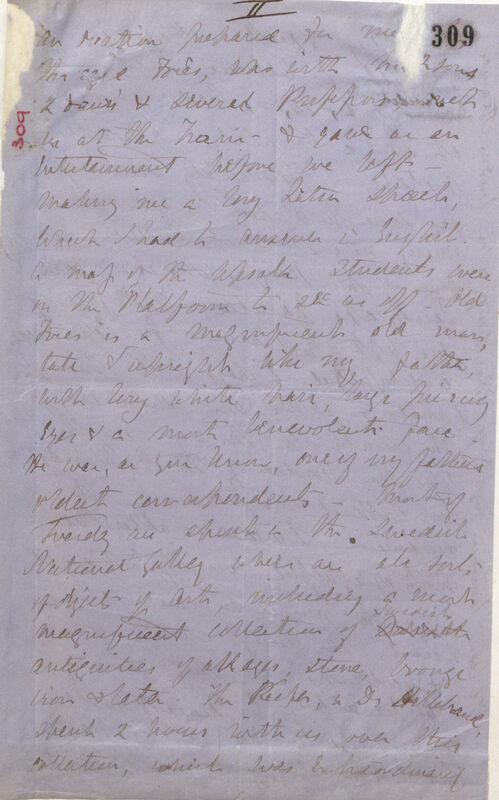 II
309
309
an oration prepared for me
The aged Fries, was with his 2 sons
2 & several Professors met
us at the Train – & gave us an
Entertainment before we left –
making me a long Latin speech,
which I had to answer in English.
a mass of the Upsala Students were
on the Platform to see us off – Old
Fries is a magnificent old man,
tall & upright like my father,
with long white hair, large piercing
Eyes & a most benevolent face –
He was, as you know, one of my fathers
oldest correspondents – Most of
Tuesday we spent in the Swedish
National Gallery where are all sorts
of objects of Art, including a most
magnificent collection of Swedish
antiquities of all ages, stone, bronze
iron & later. The Keeper, a Dr Hildebrand,
spent 2 hours with us over this
collection, which was extraordinarily